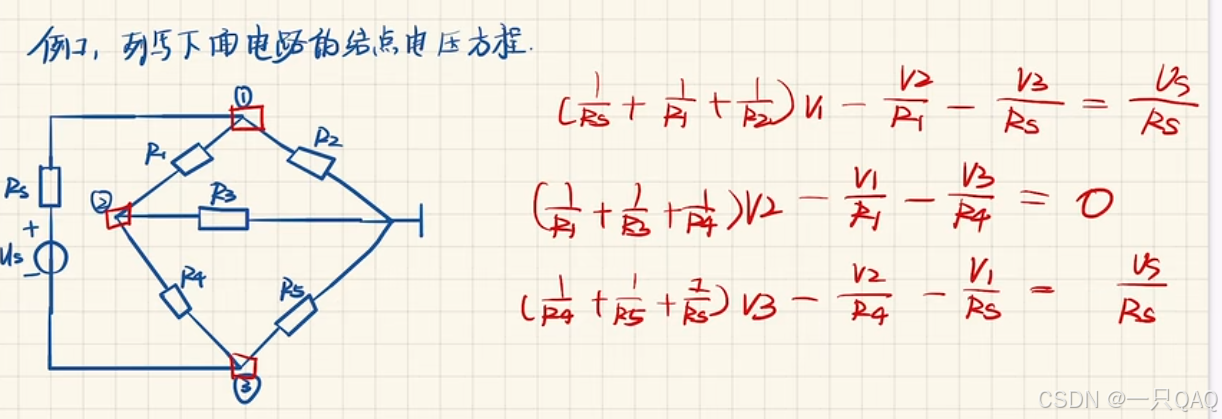 例1, 列写下面电路的结点电压方程.
①
R1
R2
Rs
②
R3
+
Us
-
R4
R5
③
(1/Rs + 1/R1 + 1/R2)V1 - V2/R1 - V3/Rs = Us/Rs
(1/R1 + 1/R3 + 1/R4)V2 - V1/R1 - V3/R4 = 0
(1/R4 + 1/R5 + 1/Rs)V3 - V2/R4 - V1/Rs = Us/Rs
CSDN @一只QAQ